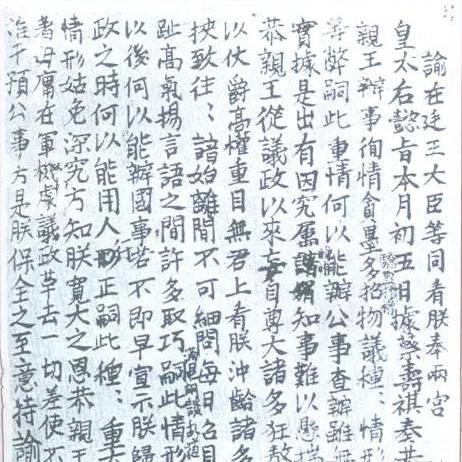 諭在廷王大臣等同看朕奉兩宮
皇太右懿旨本月初五日據蔡壽祺奏恭
親王辦事徇情貪墨多招物議種〻情形
等弊嗣此重情何以能辦公事查辦雖無
實據是出有因究屬知事難以懸揣
恭親王從議政以來妄自尊大諸多狂敖
以仗爵高權重目無君上看朕沖齡諸多
挾致往〻諳始離間不可細問每日召見
趾高氣揚言語之間許多取巧滿口胡談亂道嗣此情形
以後何以能辦國事若不即早宣示朕歸
政之時何以能用人行正嗣此種〻重大
情形姑免深究方知朕寬大之恩恭親王
著毋庸在軍機處議政革去一切差使不
准干預公事方是朕保全之至意特諭